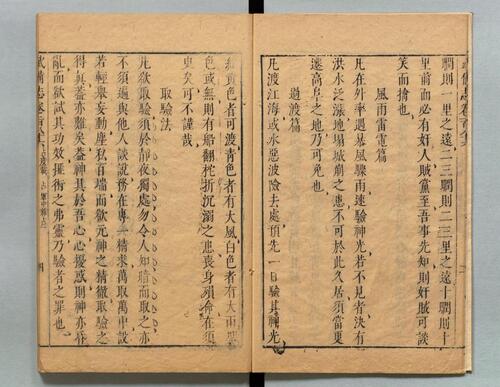 關則一里之遠二三關則二三里之遠十關則十
里前面必有奸人賊黨至吾事先知則奸賊可談
笑而擒也
風雨雷電篇
凡在外率遇暴風驟雨速驗神光若不見者決有
洪水泛漲地塌城崩之患不可於此久居須當更
遠高阜之地乃可免
過渡篇
凡渡江海或水惡波險去處須先一日驗其神光
黃色者可渡青色者有大風白色者有大雨
色或無則有船翻桅折沉溺之患喪身殞命在須
臾矣可不謹哉
取驗法
凡欲取驗須於靜夜獨處勿令人知暗而取之亦
不須過與他人談說務在專一精求萬取萬中設
若輕舉妄動塵私百端而欲元神之精徹取驗之
得其益亦難矣益神其於吾心心擾惑則神亦昏
亂而欲試其功效推術之弗靈乃驗者之罪也
武備志卷